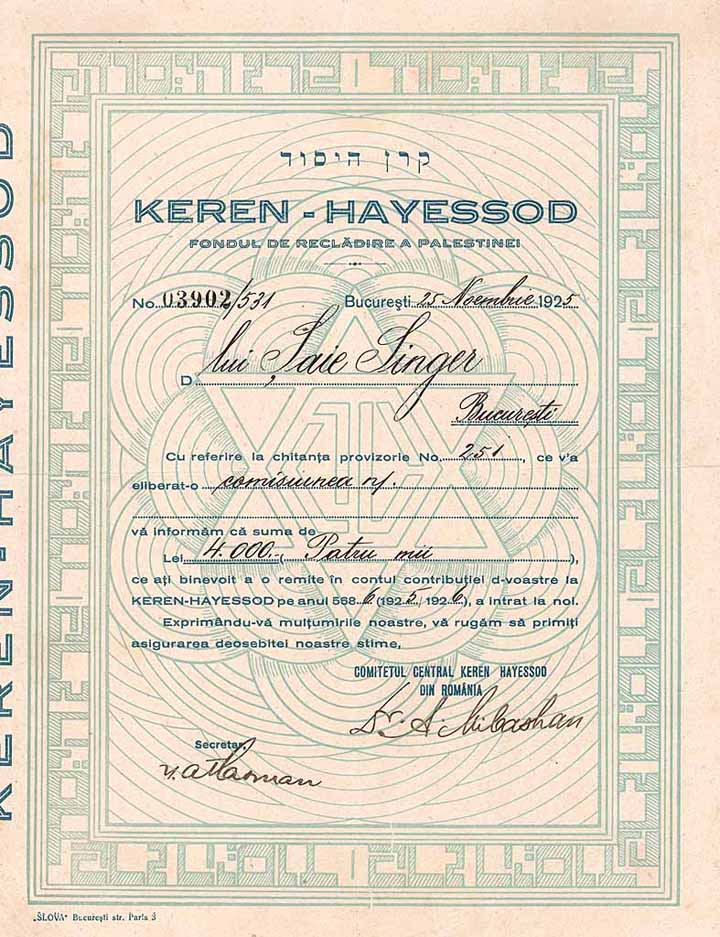 קרן היסוד
KEREN-HAYESSOD
FONDUL DE RECLĂDIRE A PALESTINEI
No. 03902/531 București 25 Noembrie 1925
D lui Șaie Singer
București
Cu referire la chitanța provizorie No. 251, ce v'a
eliberat-o comisiunea
vă informăm că suma de
Lei 4.000.-( Patru mii ),
ce ați binevoit a o remite în contul contribuției d-voastre la
KEREN-HAYESSOD pe anul 5686 (1925/1926), a intrat la noi.
Exprimându-vă mulțumirile noastre, vă rugăm să primiți
asigurarea deosebitei noastre stime,
COMITETUL CENTRAL KEREN HAYESSOD
DIN ROMÂNIA
Dr. A. Mibashan
Secretar,
KEREN-HAYESSOD
„SLOVA" București str. Paris 3